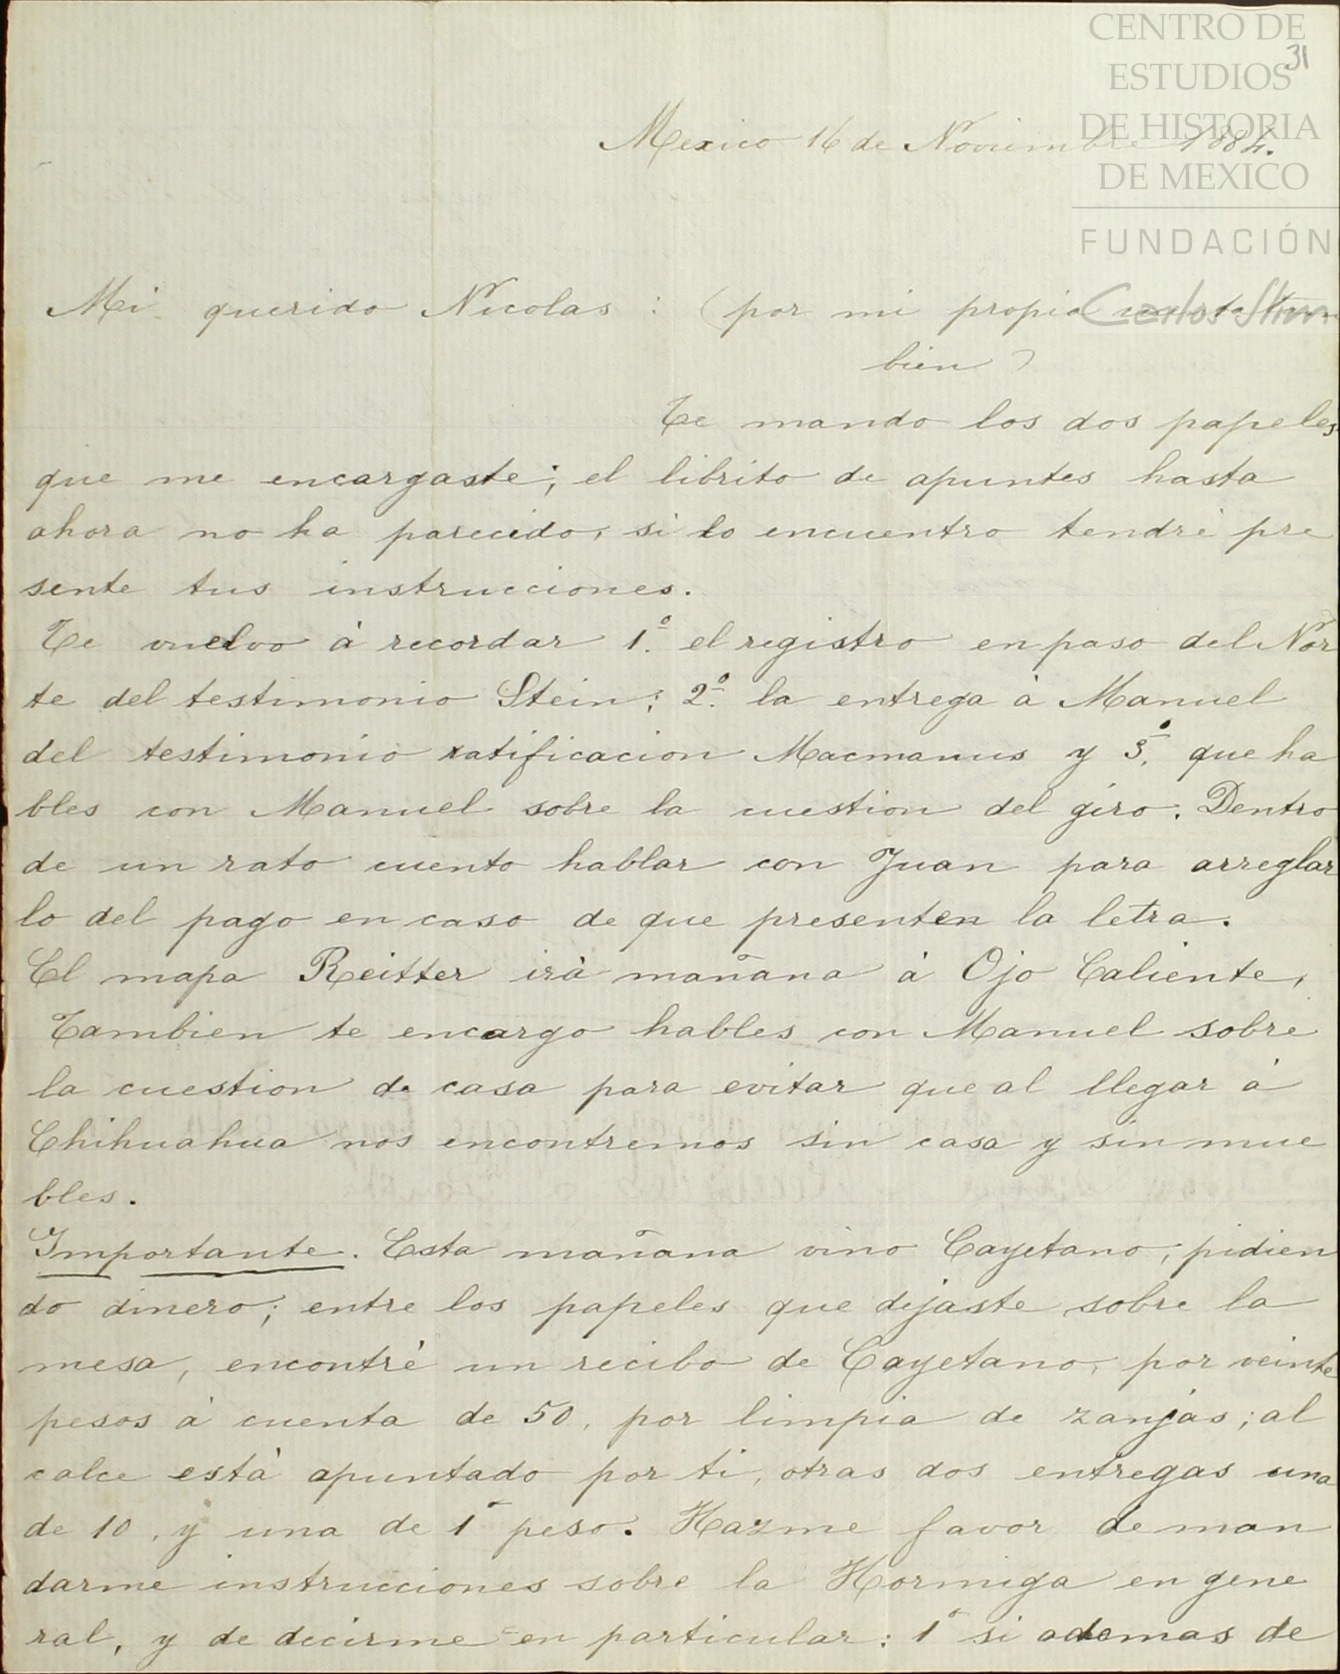 CENTRO DE
ESTUDIOS
DE HISTORIA
DE MEXICO
FUNDACIÓN
Carlos Slim
31
Mexico 16 de Noviembre 1884.
Mi querido Nicolas: (por mi propia cuenta tam
bien)
Te mando los dos papeles
que me encargaste; el librito de apuntes hasta
ahora no ha parecido, si lo encuentro tendré pre
sente tus instrucciones.
Te vuelvo á recordar 1.º el registro en paso del Nor
te del testimonio Stein; 2.º la entrega á Manuel
del testimonio ratificacion Macmanus y 3.º que ha
bles con Manuel sobre la cuestion del giro. Dentro
de un rato cuento hablar con Juan para arreglar
lo del pago en caso de que presenten la letra.
El mapa Reitter irá mañana á Ojo Caliente,
Tambien te encargo hables con Manuel sobre
la cuestion de casa para evitar que al llegar á
Chihuahua nos encontremos sin casa y sin mue
bles.
Importante. Esta mañana vino Cayetano, pidien
do dinero; entre los papeles que dejaste sobre la
mesa, encontré un recibo de Cayetano, por veinte
pesos á cuenta de 50, por limpia de zanjas; al
calce está apuntado por ti, otras dos entregas una
de 10, y una de 1 peso. Hazme favor de man
darme instrucciones sobre la Hormiga en gene
ral, y de decirme en particular: 1º si ademas de